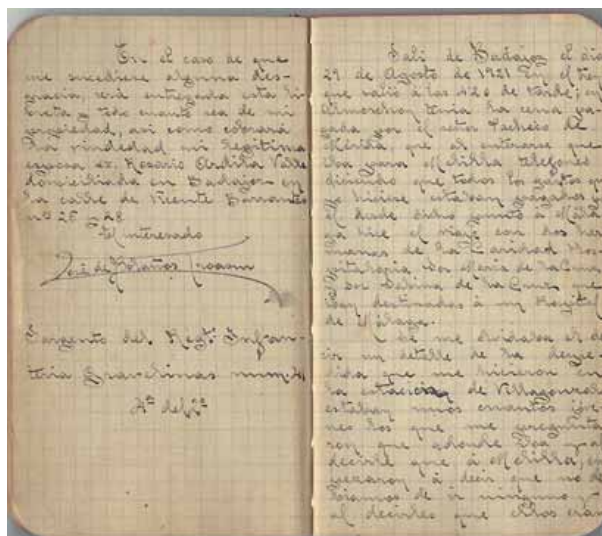 En el caso de que
me sucediese alguna des-
gracia, será entregada esta li-
breta y todo cuanto sea de mi
propiedad, asi como cobrará
la viudedad mi legitima
esposa Dª. Rosario Ardila Valle
domiciliada en Badajoz en
la calle de Vicente Barrantes
nº 26 y 28
El interesado
José de
Sargento del Regtº Infan-
teria Gravelinas num. 41
4ª del 2º
Salí de Badajoz el dia
29 de Agosto de 1921 En el tren
que salió a las 4,20 de tarde; en
Almorchon tenia la cena pa-
gada por el señor Pacheco de
Mérida, que al enterarse que
iba para Melilla telefoneó
diciendo que todos los gastos que
yo hiciese estaban pagados por
el desde dicho punto á Mála-
ga hice el viaje con dos her-
manas de la Caridad Hos-
Sor Maria de la Cruz
y Sor Sabina de la Cruz que
iban destinadas á un Hospital
de Málaga.
Se me olvidaba el de-
cir un detalle de la despe-
dida que me hicieron En
la estación de Villagonzalo
estaban unos cuantos jóve-
nes los que me pregunta-
ron que adonde iba y al
decirle que á Melilla, em-
pezaron á decir que no de-
biamos de ir ninguno y
al decirles que ellos eran